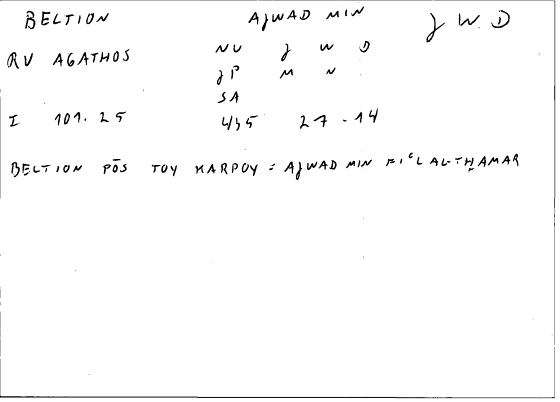 BELTION AJWAD MIN J W D
RV AGATHOS NU J W D
JP M N
SA
I 101.25 4/45 27.14
BELTION PŌS TOY KARPOY = AJWAD MIN FI'L AL-THAMAR